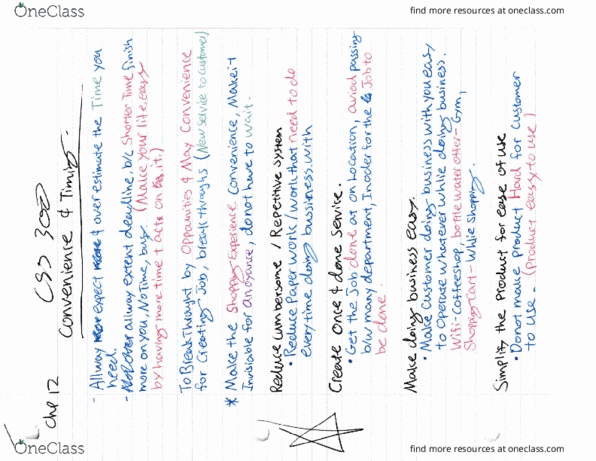 OneClass
find more resources at oneclass.com
Chp 12
CSS 300
Convenience & Timing.
- Allway expect & over estimate the Time you
need.
- allway extent deadline, b/c Shorter Time finish
more on you, No Time, busy. (Make your life easy
by having more time & acts on it.)
To BreakThought by Oppounities & May Convenience
for Creating Job, breakthroughs (New service to customer)
* Make the Shopping Experience Convenience, Make it
Invisiable for Anoyance, do not have to wait.
Reduce cumbersome / Repetitive System
• Reduce Paper work / work that need to do
everytime doing bussiness with
Create Once & done service.
• Get the Job done at on Location, aviod passing
b/w many department, In oder for the Job to
be done.
Make doing business easy.
• Make Customer doing business with you easy
to Operate whatever while doing business.
Wifi - Coffeeshop, bottle water offer - Gym,
Shopping Cart - While Shopping.
Simplify the Product for ease of use
• Do not make product Hard for Customer
to use. (Product easy to use)
OneClass
find more resources at oneclass.com